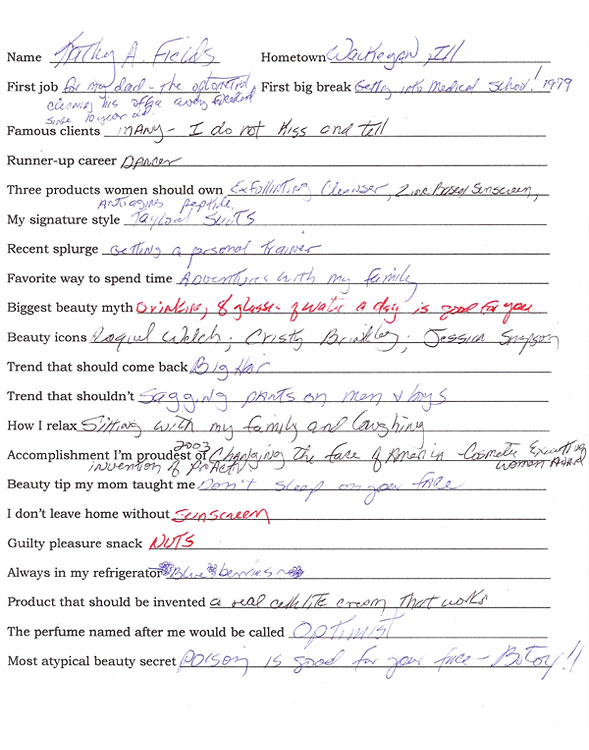 Name Kathy A. Fields Hometown Waukegan, Ill
First job for my dad - the optometrist, First big break Getting into Medical School! 1979
cleaning his office every weekend
since 10 year old
Famous clients MANY - I do not Kiss and tell
Runner-up career DANCER
Three products women should own Exfolliating Cleanser, Zinc Based Sunscreen,
Antiaging peptide
My signature style Taylored Suits
Recent splurge Getting a personal trainer
Favorite way to spend time Adventures with my family
Biggest beauty myth Drinking 8 glasses of water a day is good for you
Beauty icons Raquel Welch; Cristy Brinkley; Jessica Simpson
Trend that should come back Big Hair
Trend that shouldn't sagging pants on men & boys
How I relax Sitting with my family and laughing
2003
Accomplishment I'm proudest of Changing the face of America - Cosmetic Executive
invention of ProActiv Women Award
Beauty tip my mom taught me Don't sleep on your face
I don't leave home without sunscreen
Guilty pleasure snack NUTS
Always in my refrigerator Blue berries
Product that should be invented a real cellulite cream that works
The perfume named after me would be called OPTIMIST
Most atypical beauty secret Poison is good for your face - Botox!!